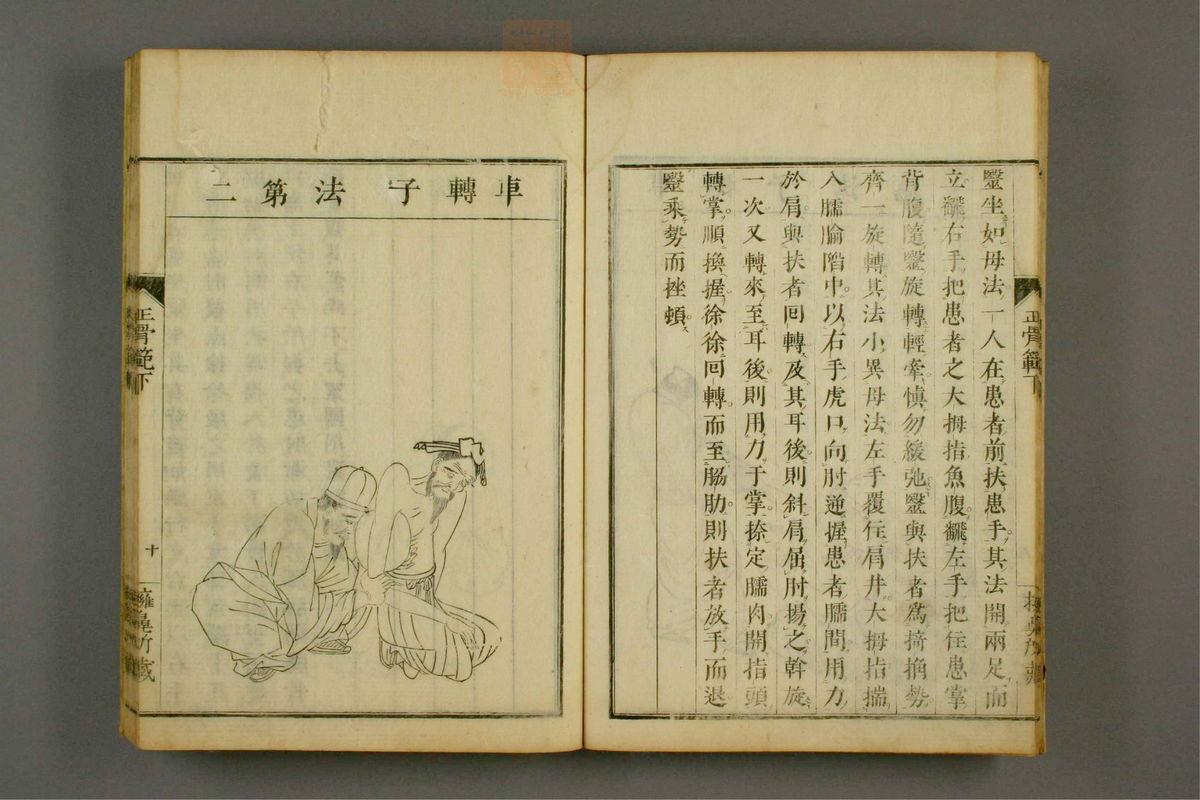 毉坐如母法一人在患者前扶患手其法開兩足而
立飜右手把患者之大拇指魚腹飜左手把住患掌
背腹隨毉旋轉輕牽慎勿緩弛毉與扶者為掎捔勢
齊一旋轉其法小異母法左手覆住肩井大拇指揣
入臑腧陷中以右手虎口向肘逆握患者臑間用力
於肩與扶者回轉及其耳後則斜肩屈肘揚之斡旋
一次又轉來至耳後則用力于掌捺定臑肉開指頭
轉掌順換握徐徐回轉而至脇肋則扶者放手而退
毉乘勢而挫頓
正骨範下
車轉子法第二
正骨範下
十
擁鼻所藏